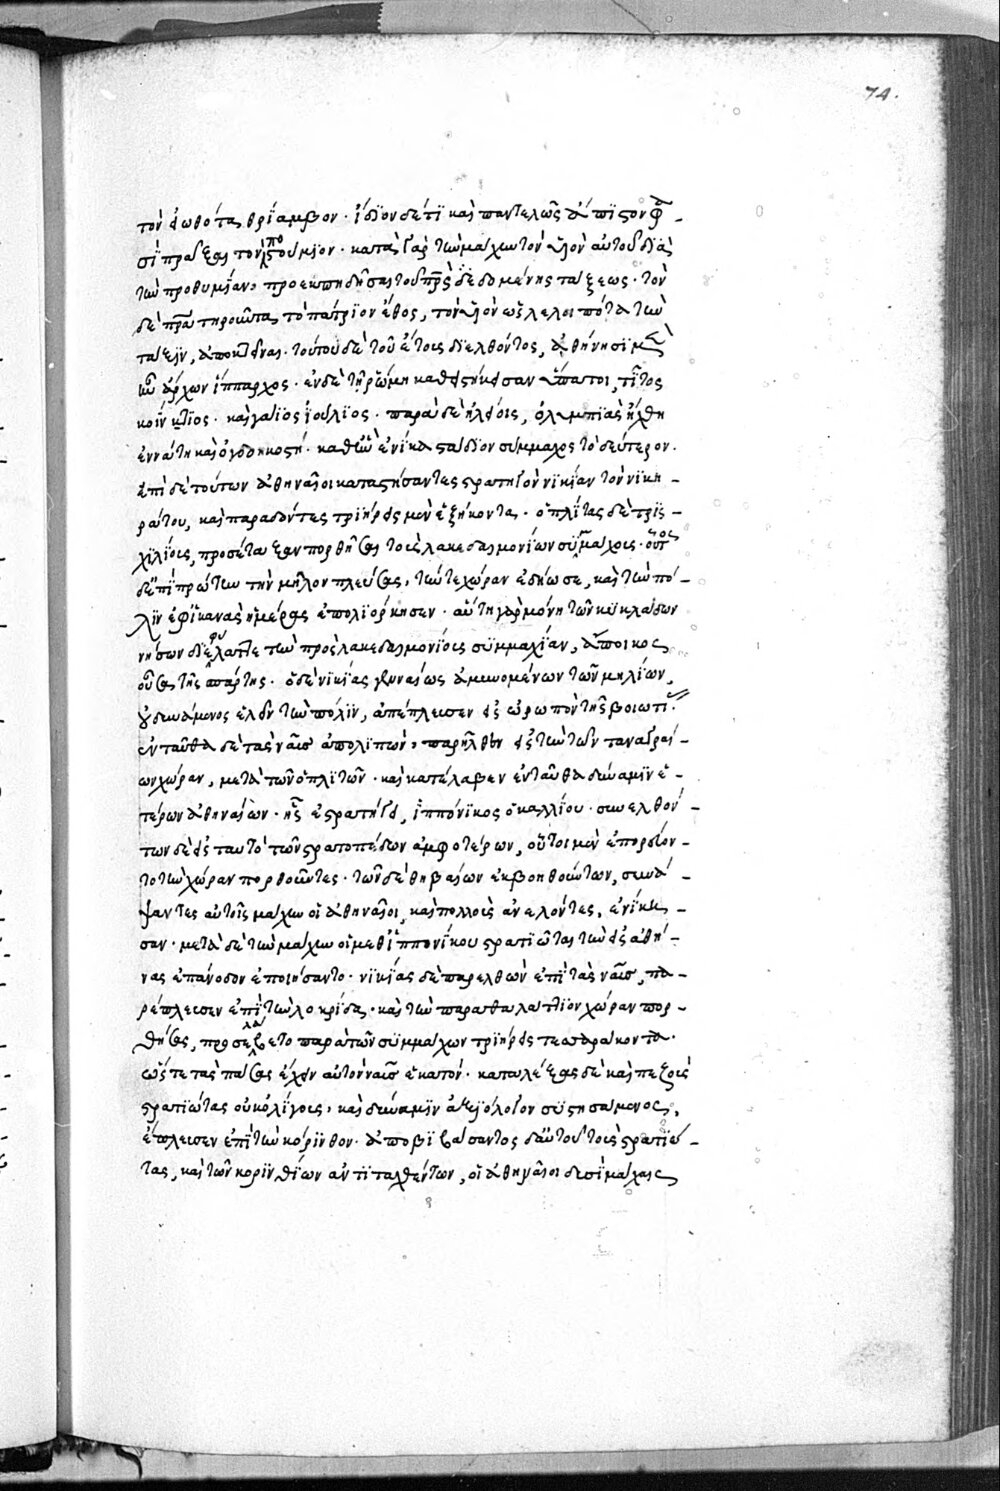 74.
τὸν εἰωθότα θρίαμβον. ἴδϊον δέ τϊ καὶ παντελῶς ἄπϊστον φα-
σὶ πρᾶξαι τὸν ποστούμϊον. κατὰ γὰρ τὴν μάχην τὸν υἱὸν αὐτοῦ δϊὰ
τὴν προθυμίαν, προεκπηδῆσαι τοῦ πρὸς δεδομένης τάξεως. τὸν
δὲ πρα τηροῦντα τὸ πάτρϊον ἔθος, τὸν υἱὸν ὡς λελοιπότα τὴν
τάξϊν, ἀποκτεῖναι. τούτου δὲ τοῦ ἔτους δϊελθόντος, ἀθήνησϊ μὲν
ἦν ἄρχων ἵππαρχος. ἐν δὲ τῇ ῥώμῃ καθειστήκεισαν ὕπατοι, τίτος
κοΐν κτϊος. καὶ γάϊος ἰούλϊος. παρὰ δὲ ἠλείοις, ὀλυμπϊὰς ἤχθη
ἐννάτη καὶ ὀγδοηκοστή. καθ' ἣν ἐνίκα στάδϊον σύμμαχος τὸ δεύτερον.
ἐπὶ δὲ τούτων ἀθηναῖοι καταστήσαντες στρατηγὸν νϊκίαν τὸν νϊκη-
ράτου, καὶ παραδόντες τρϊήρεις μὲν ἑξήκοντα. ὁπλίτας δὲ τρϊς-
χϊλίους, προσέταξαν πορθῆσαι τοὺς λακεδαιμονίων συμμάχους. οὗτος
δ' ἐπὶ πρώτην τὴν μῆλον πλεύσας, τήν τε χώραν ἐδήωσε, καὶ τὴν πό-
λϊν ἐφ' ἱκανὰς ἡμέρας ἐπολϊόρκησεν. αὕτη γὰρ μόνη τῶν κϋκλάδων
νήσων δϊεφύλαττε τὴν πρὸς λακεδαιμονίους συμμαχίαν, ἄποικος
οὖσα τῆς σπάρτης. ὁ δὲ νϊκίας γενναίως ἀμυνομένων τῶν μηλίων,
οὐ δυνάμενος ἑλεῖν τὴν πόλϊν, ἀπέπλευσεν εἰς ὠρωπὸν τῆς βοιωτί.
ἐνταῦθα δὲ τὰς ναῦς ἀπολϊπών, παρῆλθεν εἰς τὴν τῶν ταναγραί-
ων χώραν, μετὰ τῶν ὁπλϊτῶν. καὶ κατέλαβεν ἐνταῦθα δύναμϊν ἑ-
τέρων ἀθηναίων. ἧς ἐστρατήγει, ἱππόνϊκος ὁ καλλίου. συνελθόν-
των δὲ εἰς ταυτὸ τῶν στρατοπέδων ἀμφοτέρων, οὗτοι μὲν ἐπορεύον-
το τὴν χώραν πορθοῦντες. τῶν δὲ θηβαίων ἐκβοηθούντων, συνά-
ψαντες αὐτοῖς μάχην οἱ ἀθηναῖοι, καὶ πολλοὺς ἀνελόντες, ἐνίκη-
σαν. μετὰ δὲ τὴν μάχην οἱ μεθ' ἱππονίκου στρατϊῶται τὴν εἰς ἀθή-
νας ἐπάνοδον ἐποιήσαντο. νϊκίας δὲ παρελθὼν ἐπὶ τὰς ναῦς, πα-
ρέπλευσεν ἐπὶ τὴν λοκρίδα. καὶ τὴν παραθαλάττϊον χώραν πορ-
θήσας, προσελάβετο παρὰ τῶν συμμάχων τρϊήρεις τεσσαράκοντα.
ὥστε τὰς πάσας ἔχειν αὐτὸν ναῦς ἑκατόν. καταλέξας δὲ καὶ πεζοὺς
στρατϊώτας οὐκ ὀλίγους, καὶ δύναμϊν ἀξϊόλογον συστησάμενος,
ἔπλευσεν ἐπὶ τὴν κόρϊνθον. ἀποβϊβάσαντος δ' αὐτοῦ τοὺς στρατϊώ-
τας, καὶ τῶν κορϊνθίων ἀντϊταχθέντων, οἱ ἀθηναῖοι δυσὶ μάχαις